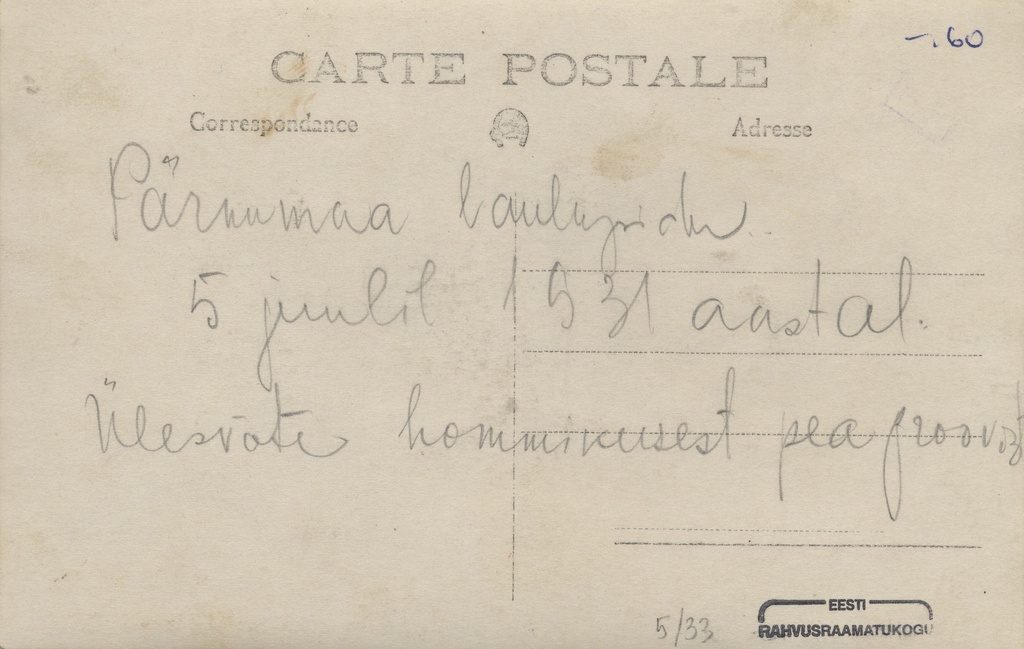 -.60
CARTE POSTALE
Correspondance Adresse
Pärnumaa laulupidu.
5 juulil 1931 aastal.
Ülesvõte hommikusest peaproovist
5/33
EESTI
RAHVUSRAAMATUKOGU